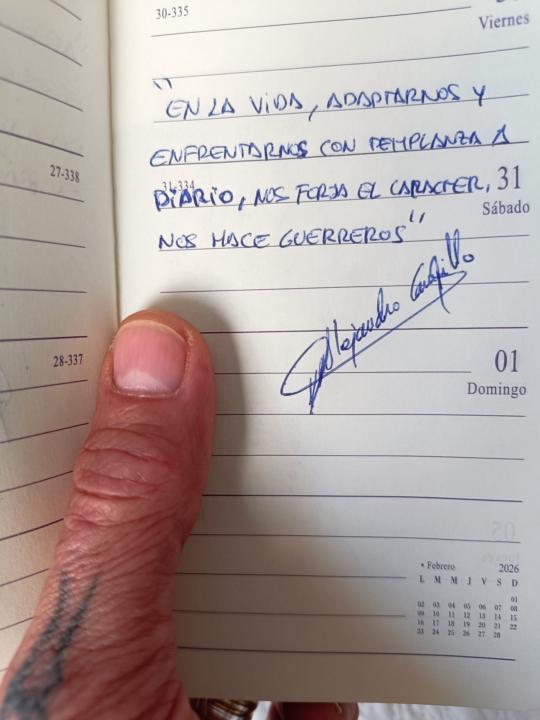 30-335
Viernes
"EN LA VIDA, ADAPTARNOS Y
ENFRENTARNOS CON TEMPLANZA A
27-338
31-334
DIARIO, NOS FORJA EL CARACTER,
31
Sábado
NOS HACE GUERREROS"
Alejandro
28-337
01
Domingo
• Febrero 2026
L M M J V S D
01
02 03 04 05 06 07 08
09 10 11 12 13 14 15
16 17 18 19 20 21 22
23 24 25 26 27 28